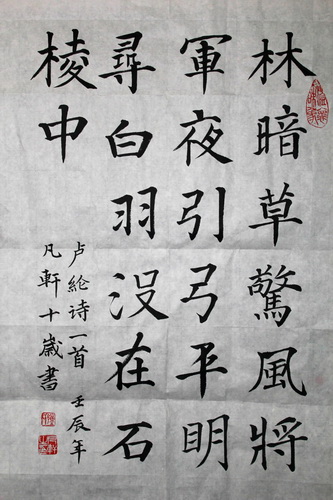 林暗草驚風將
軍夜引弓平明
尋白羽没在石
棱中
卢纶诗一首 壬辰年
凡軒十歲書